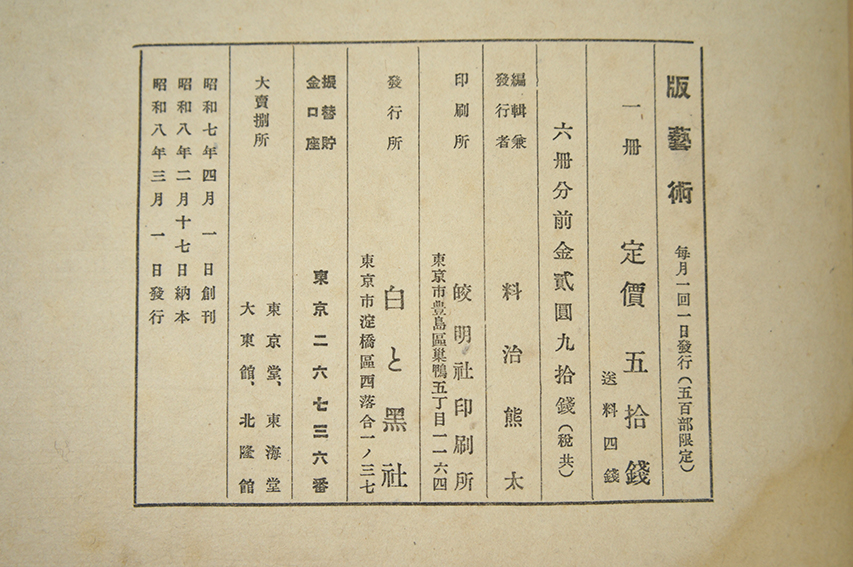 版藝術 每月一回一日發行(五百部限定)
一册 定價 五拾錢
送料四錢
六册分前金貳圓九拾錢(稅共)
編輯兼
發行者
料治熊太
印刷所
皎明社印刷所
東京市豊島區巢鴨五丁目一一六四
發行所
白と黑社
東京市淀橋區西落合一ノ三七
振替貯
金口座
東京二六七三六番
大賣捌所
東京堂、東海堂
大東館、北隆館
昭和七年四月一日創刊
昭和八年二月十七日納本
昭和八年三月一日發行